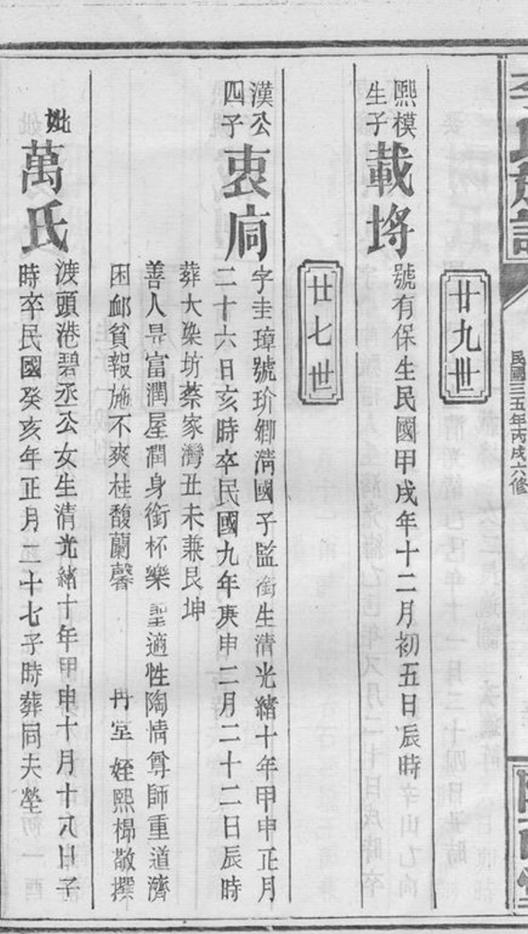 李氏族譜
民國三五年丙戌六修
廿九世
熙模
生子
載埁
號有保生民國甲戌年十二月初五日辰時
廿七世
漢公
四子
衷㢈
字圭璋號玠卿淸國子監銜生清光緒十年甲申正月
二十六日亥時卒民國九年庚申二月二十二日辰時
葬大染坊蔡家灣丑未兼艮坤
善人是富潤屋潤身銜杯樂聖適性陶情尊師重道濟
困卹貧報施不爽桂馥蘭馨
丹室 姪熙楊敬撰
妣
萬氏
渡頭港碧丞公女生清光緒十年甲申十月十八日子
時卒民國癸亥年正月二十七子時葬同夫塋